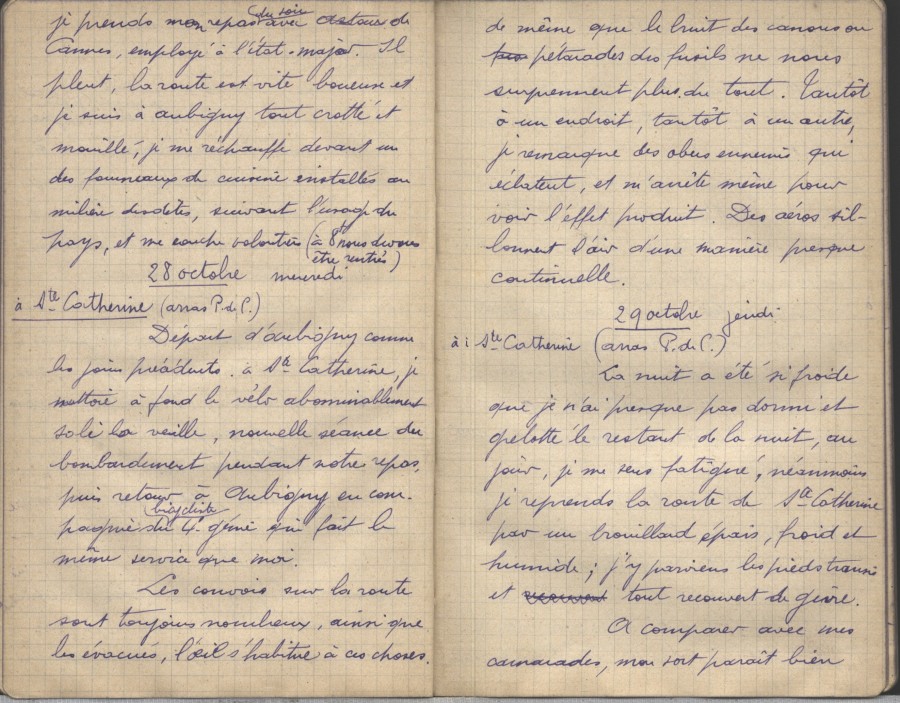 je prends mon repas du soir avec de
Cannes, employé à l'état-major. Il
pleut, la route est vite boueuse et
je suis à Aubigny tout crotté et
mouillé, je me réchauffe devant un
des fourneaux de cuisine installés au
milieu des , suivant l'usage du
pays, et me couche volontiers (à 8h nous devons
être rentrés)
28 octobre mercredi
à Ste Catherine (arras P. de C.)
Départ d'Aubigny comme
les jours précédents. à Ste Catherine, je
nettoie à fond le vélo abominablement
sali la veille, nouvelle séance du
bombardement pendant notre repas,
puis retour à Aubigny en com-
pagnie du bicycliste 4e génie qui fait le
même service que moi.
Les convois sur la route
sont toujours nombreux, ainsi que
les évacués, l'œil s'habitue à ces choses.
de même que le bruit des canons ou
pétarades des fusils ne nous
surprennent plus du tout. Tantôt
à un endroit, tantôt à un autre,
je remarque des obus ennemis qui
éclatent, et m'arrête même pour
voir l'effet produit. Des aéros sil-
lonnent l'air d'une manière presque
continuelle.
29 octobre jeudi
à Ste Catherine (arras P. de C.)
La nuit a été si froide
que je n'ai presque pas dormi et
grelotté le restant de la nuit, au
jour, je me sens fatigué, néanmoins
je reprends la route de Ste Catherine
par un brouillard épais, froid et
humide ; j'y parviens les pieds transis
et tout recouvert de givre.
A comparer avec mes
camarades, mon sort paraît bien